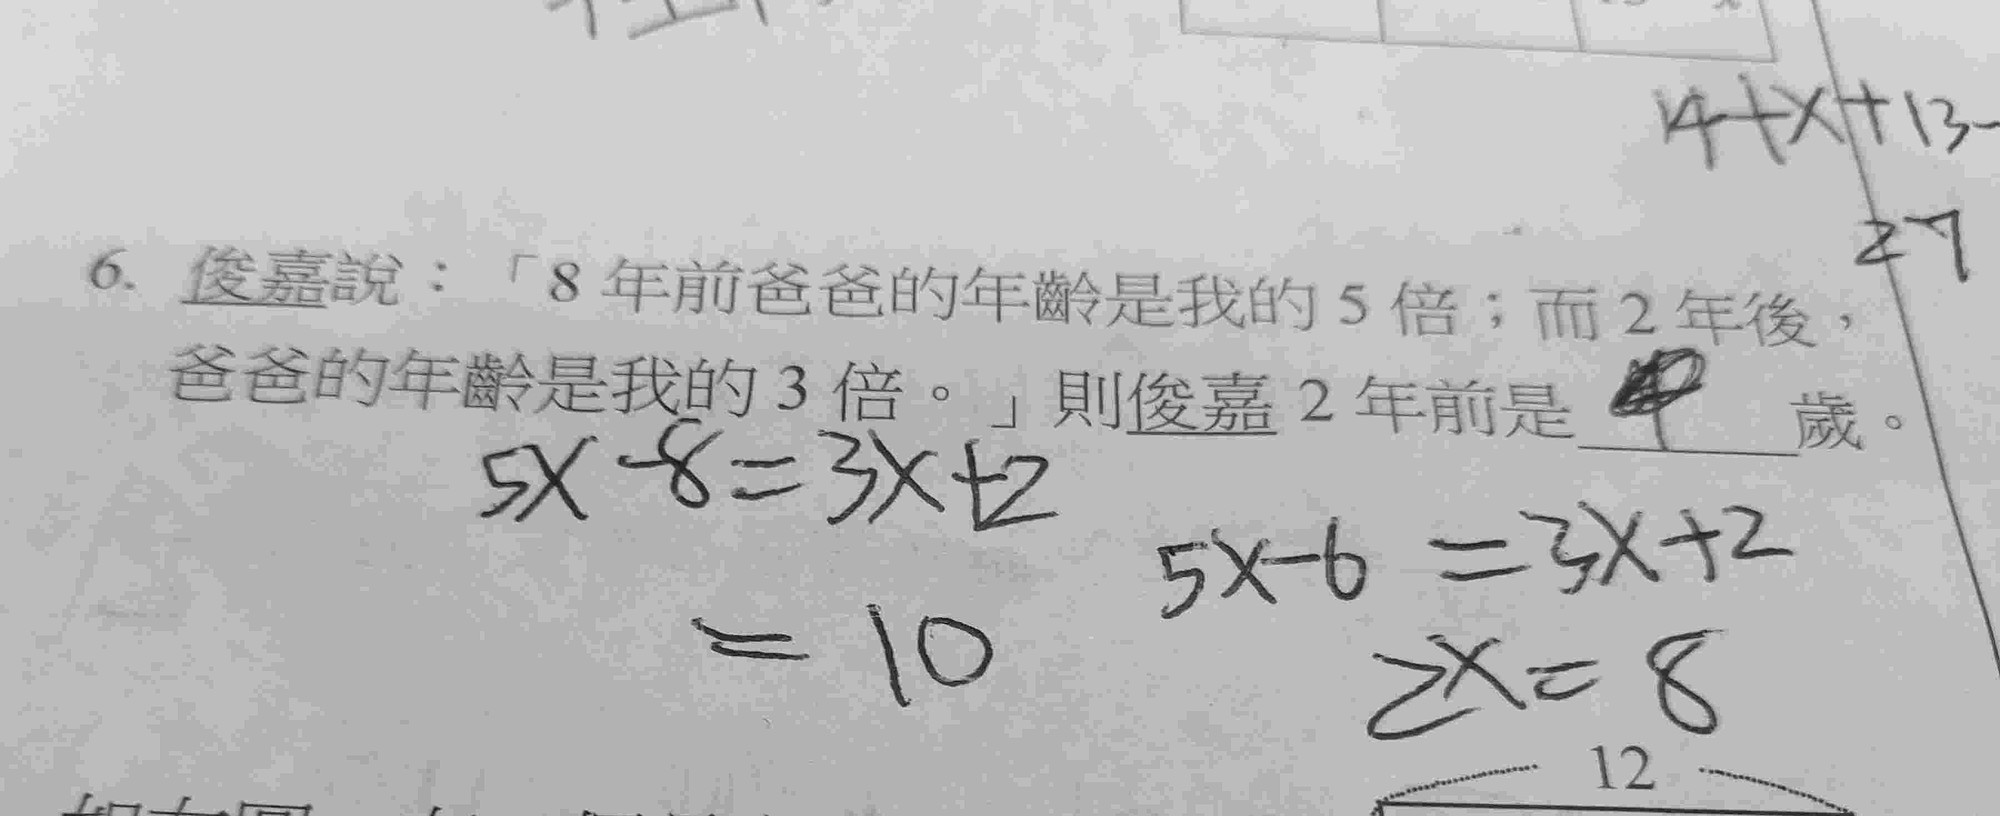 14+x+13-
27
6. 俊嘉說：「8 年前爸爸的年齡是我的 5 倍；而 2 年後，
爸爸的年齡是我的 3 倍。」則俊嘉 2 年前是 歲。
5x-8=3x+2
5x-6=3x+2
=10
2x=8
12